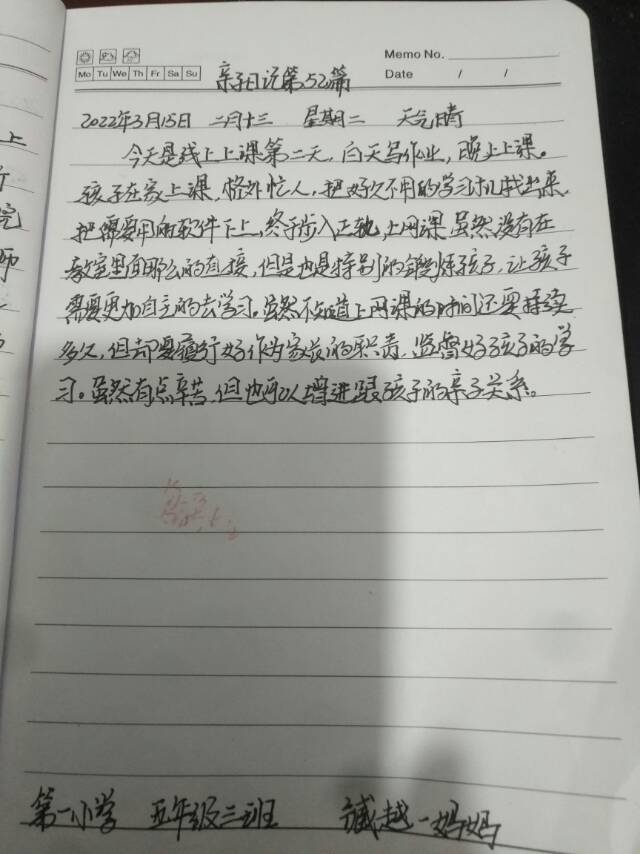 Memo No.
Mo Tu We Th Fr Sa Su
Date / /
亲子日记第52篇
2022年3月15日 二月十三 星期二 天气晴
今天是线上上课第二天，白天写作业，晚上上课。
孩子在家上课，格外忙人，把好久不用的学习机找出来，
把需要用的软件下上，终于步入正轨，上网课虽然没有在
教室里面那么的直接，但是也是特别的锻炼孩子，让孩子
需要更加自主的去学习。虽然不知道上网课的时间还要持续
多久，但却要履行好作为家长的职责，监督好孩子的学
习。虽然有点辛苦，但也可以增进跟孩子的亲子关系。
第一小学 五年级三班 臧越一妈妈
上
院
师